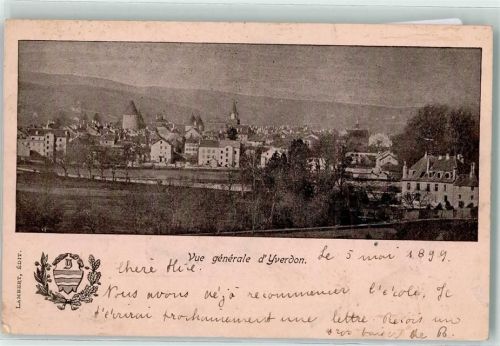 Vue générale d'Yverdon.
le 5 mai 1899
LAMBERT, ÉDIT.
Nous avons déjà recommencer l'école. Je
t'écrirai prochainement une lettre. Reçois un
de B.